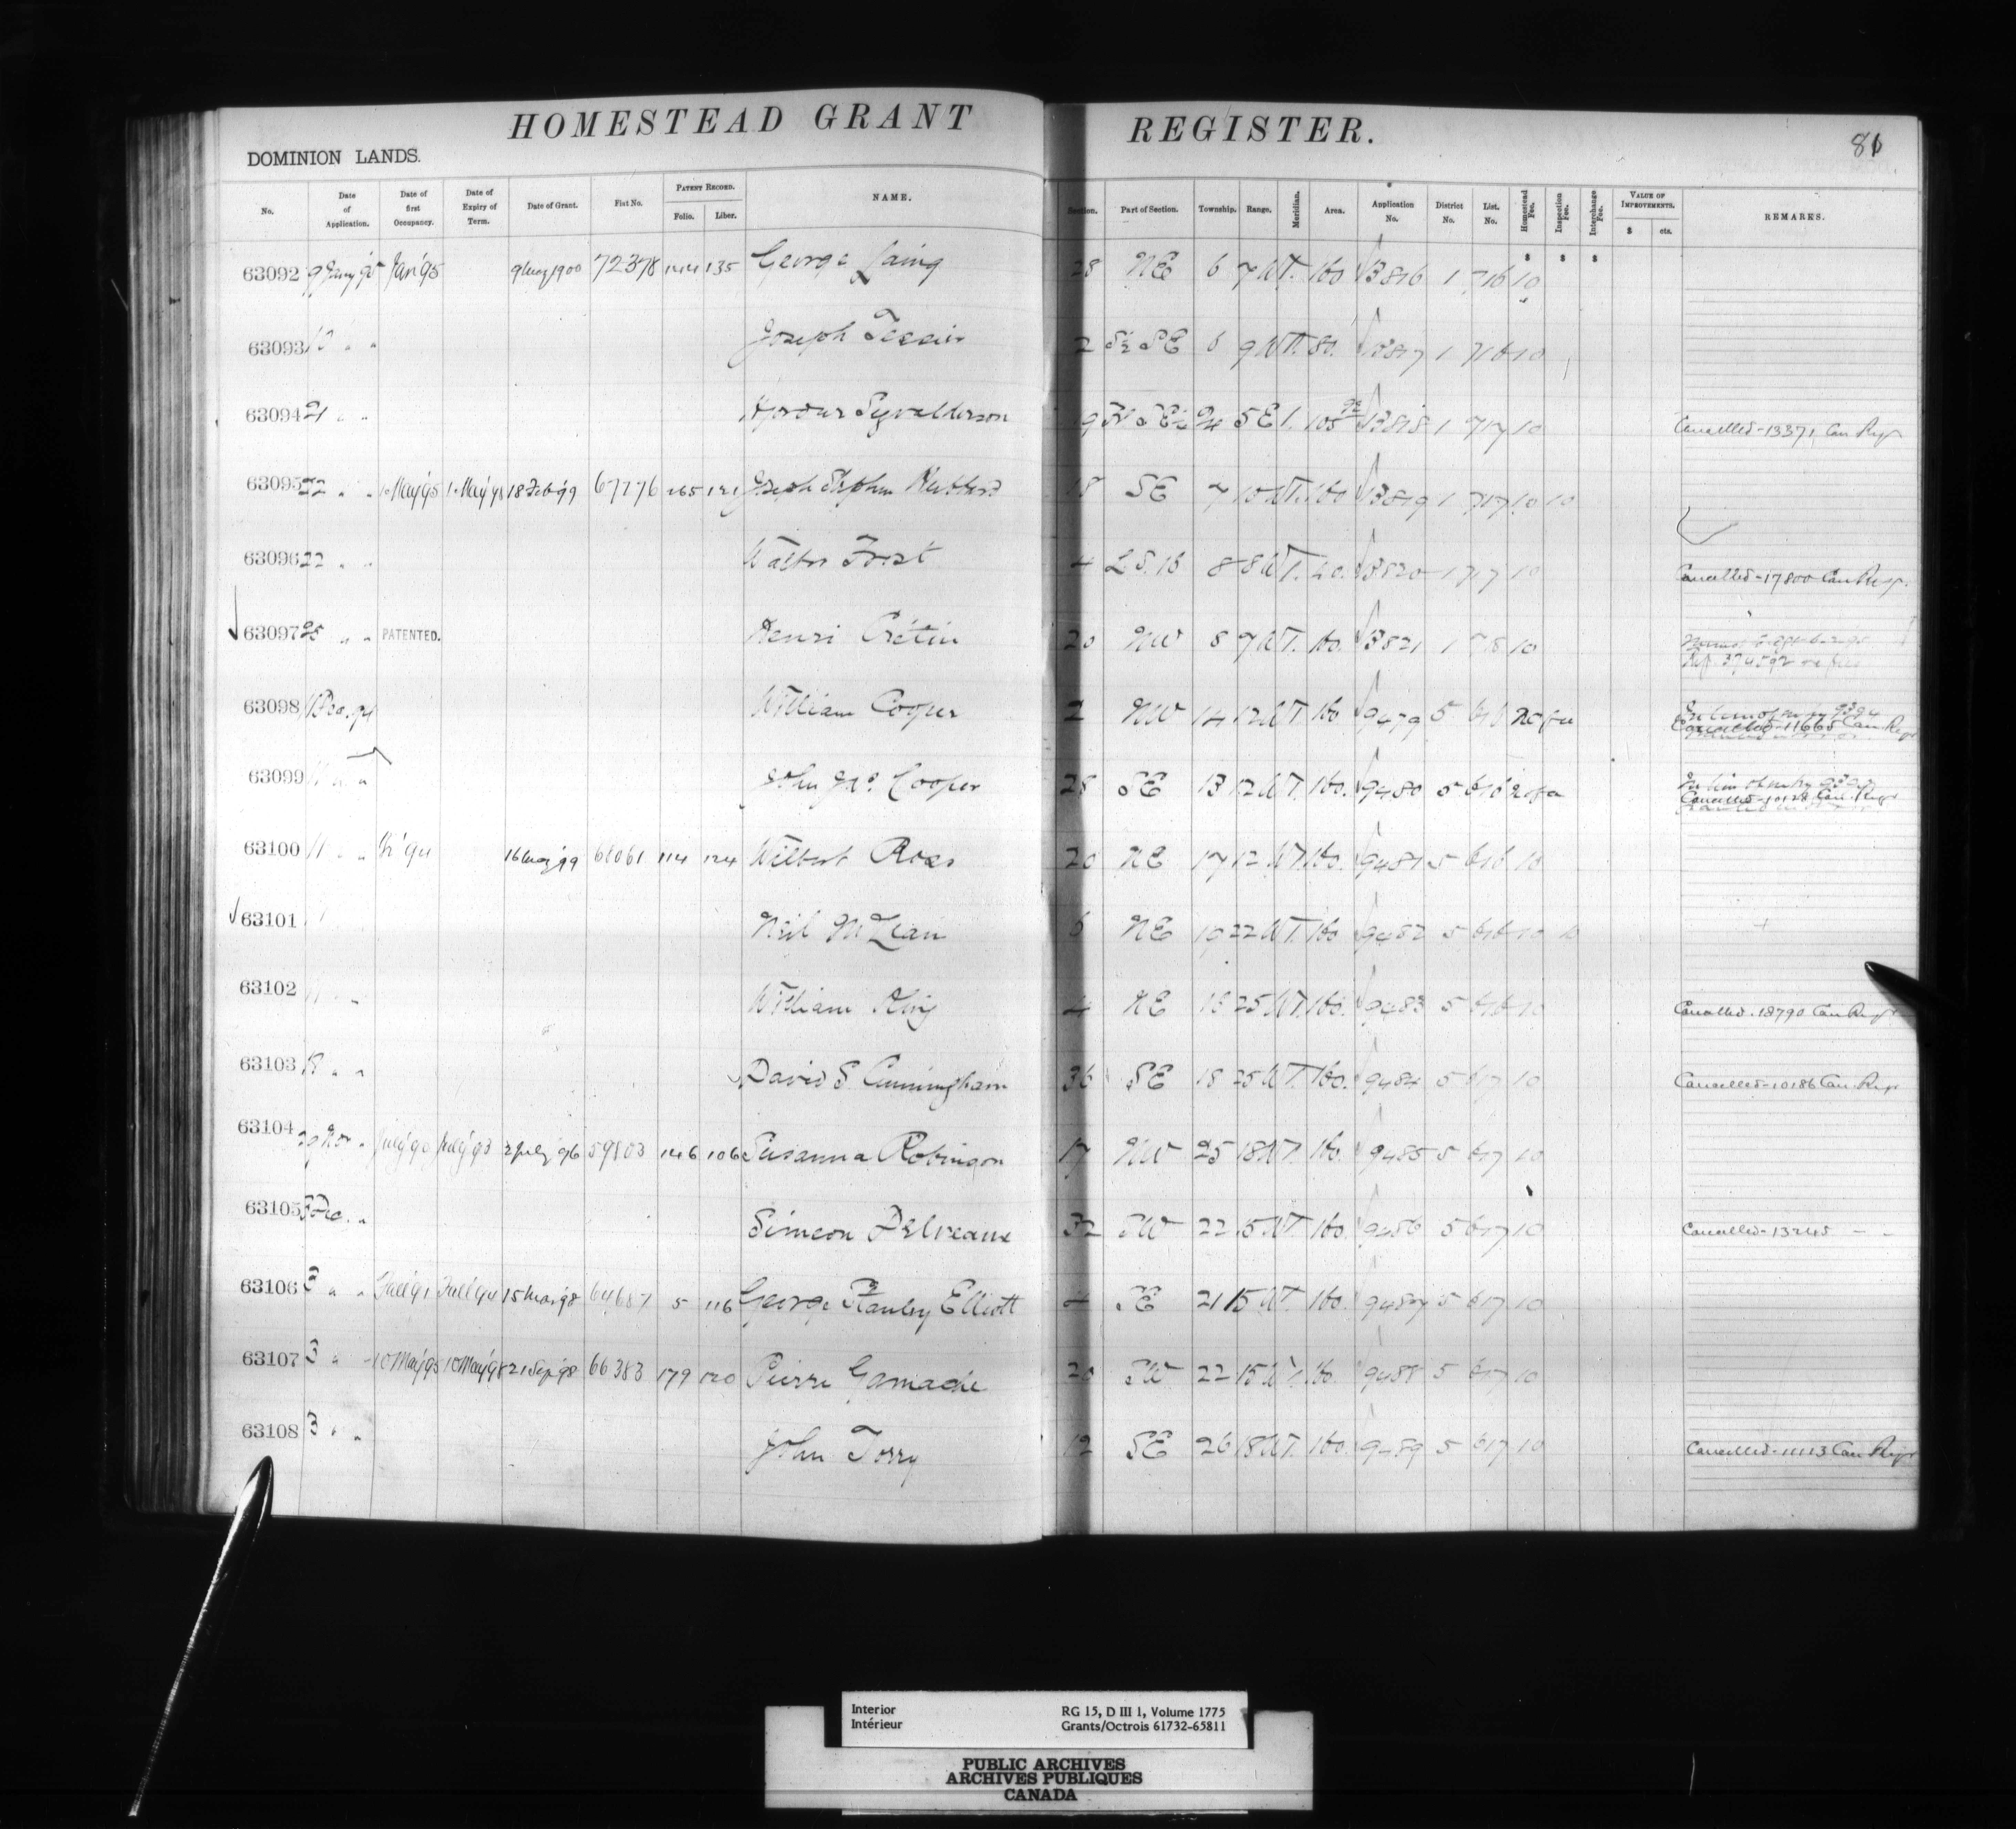 HOMESTEAD GRANT REGISTER.
81
DOMINION LANDS.
No. Date of Application. Date of first Occupancy. Date of Expiry of Term. Date of Grant. Fiat No. PATENT RECORD. Folio. Liber. NAME. Section. Part of Section. Township. Range. Meridian. Area. Application No. District No. List. No. Homestead Fee. Inspection Fee. Interchange Fee. VALUE OF IMPROVEMENTS. $ cts. REMARKS.
63092 Jan'95 72378 144 135 George Laing 28 NE 6 7 W 1. 160 13816 1 716 10
63093 Joseph Tessier 2 S½ SE 6 9 W 1. 80. 13817 1 716 10
63094 21 " " 9 5 E 1. 13818 1 717 10 Cancelled - 13371 Can Regr
63095 22 " " 1 May'95 18 Feb'99 67776 265 121 Joseph Stephen 18 SE 7 10 W 1. 160 13819 1 717 10 10
63096 22 " " Walter Frost 4 L S. 16 8 8 W 1. 40. 13820 1 717 10 Cancelled - 17800 Can Regr.
63097 25 " " PATENTED. Henri Crétin 20 NW 8 7 W 1. 160. 13821 1 718 10
63098 William Cooper 2 NW 14 12 W 1. 160 9479 5 616 Cancelled - 11665 Can Regr
63099 11 " " John Cooper 28 SE 13 12 W 1. 160. 9480 5 616 Cancelled - 10128 Can. Regr
63100 11 " " 68061 114 124 Wilbert Ross 20 NE 17 12 W 1. 160. 9481 5 616 10
63101 Neil McLean 6 NE 19 22 W 1. 160 9482 5 616 10 10
63102 11 " " William King 4 NE 25 W 1. 160. 9483 5 616 10 Cancelled. 18790 Can Regr
63103 " " David S Cunningham 36 SE 18 25 W 1. 160. 9484 5 617 10 Cancelled - 10186 Can. Regr
63104 29 Nov " July'90 July'93 2 July'96 59803 146 106 Susanna Robinson 17 NW 25 18 W 1. 160. 9485 5 617 10
63105 3 Dec. " Simeon 32 SW 22 15 W 1. 160. 9486 5 617 10 Cancelled - 13245 " "
63106 3 " " Fall'91 Fall'94 15 Mar'98 64687 5 116 George Stanley Elliott 4 SE 21 15 W 1. 160. 9487 5 617 10
63107 3 " " 10 May'95 10 May'98 21 Sep'98 66383 179 120 Pierre Gamache 20 SW 22 15 W 1. 160. 9488 5 617 10
63108 3 " " John Torry 12 SE 26 18 W 1. 160. 9489 5 617 10 Cancelled - 11113 Can Regr
Interior
Intérieur
RG 15, D III 1, Volume 1775
Grants/Octrois 61732-65811
PUBLIC ARCHIVES
ARCHIVES PUBLIQUES
CANADA